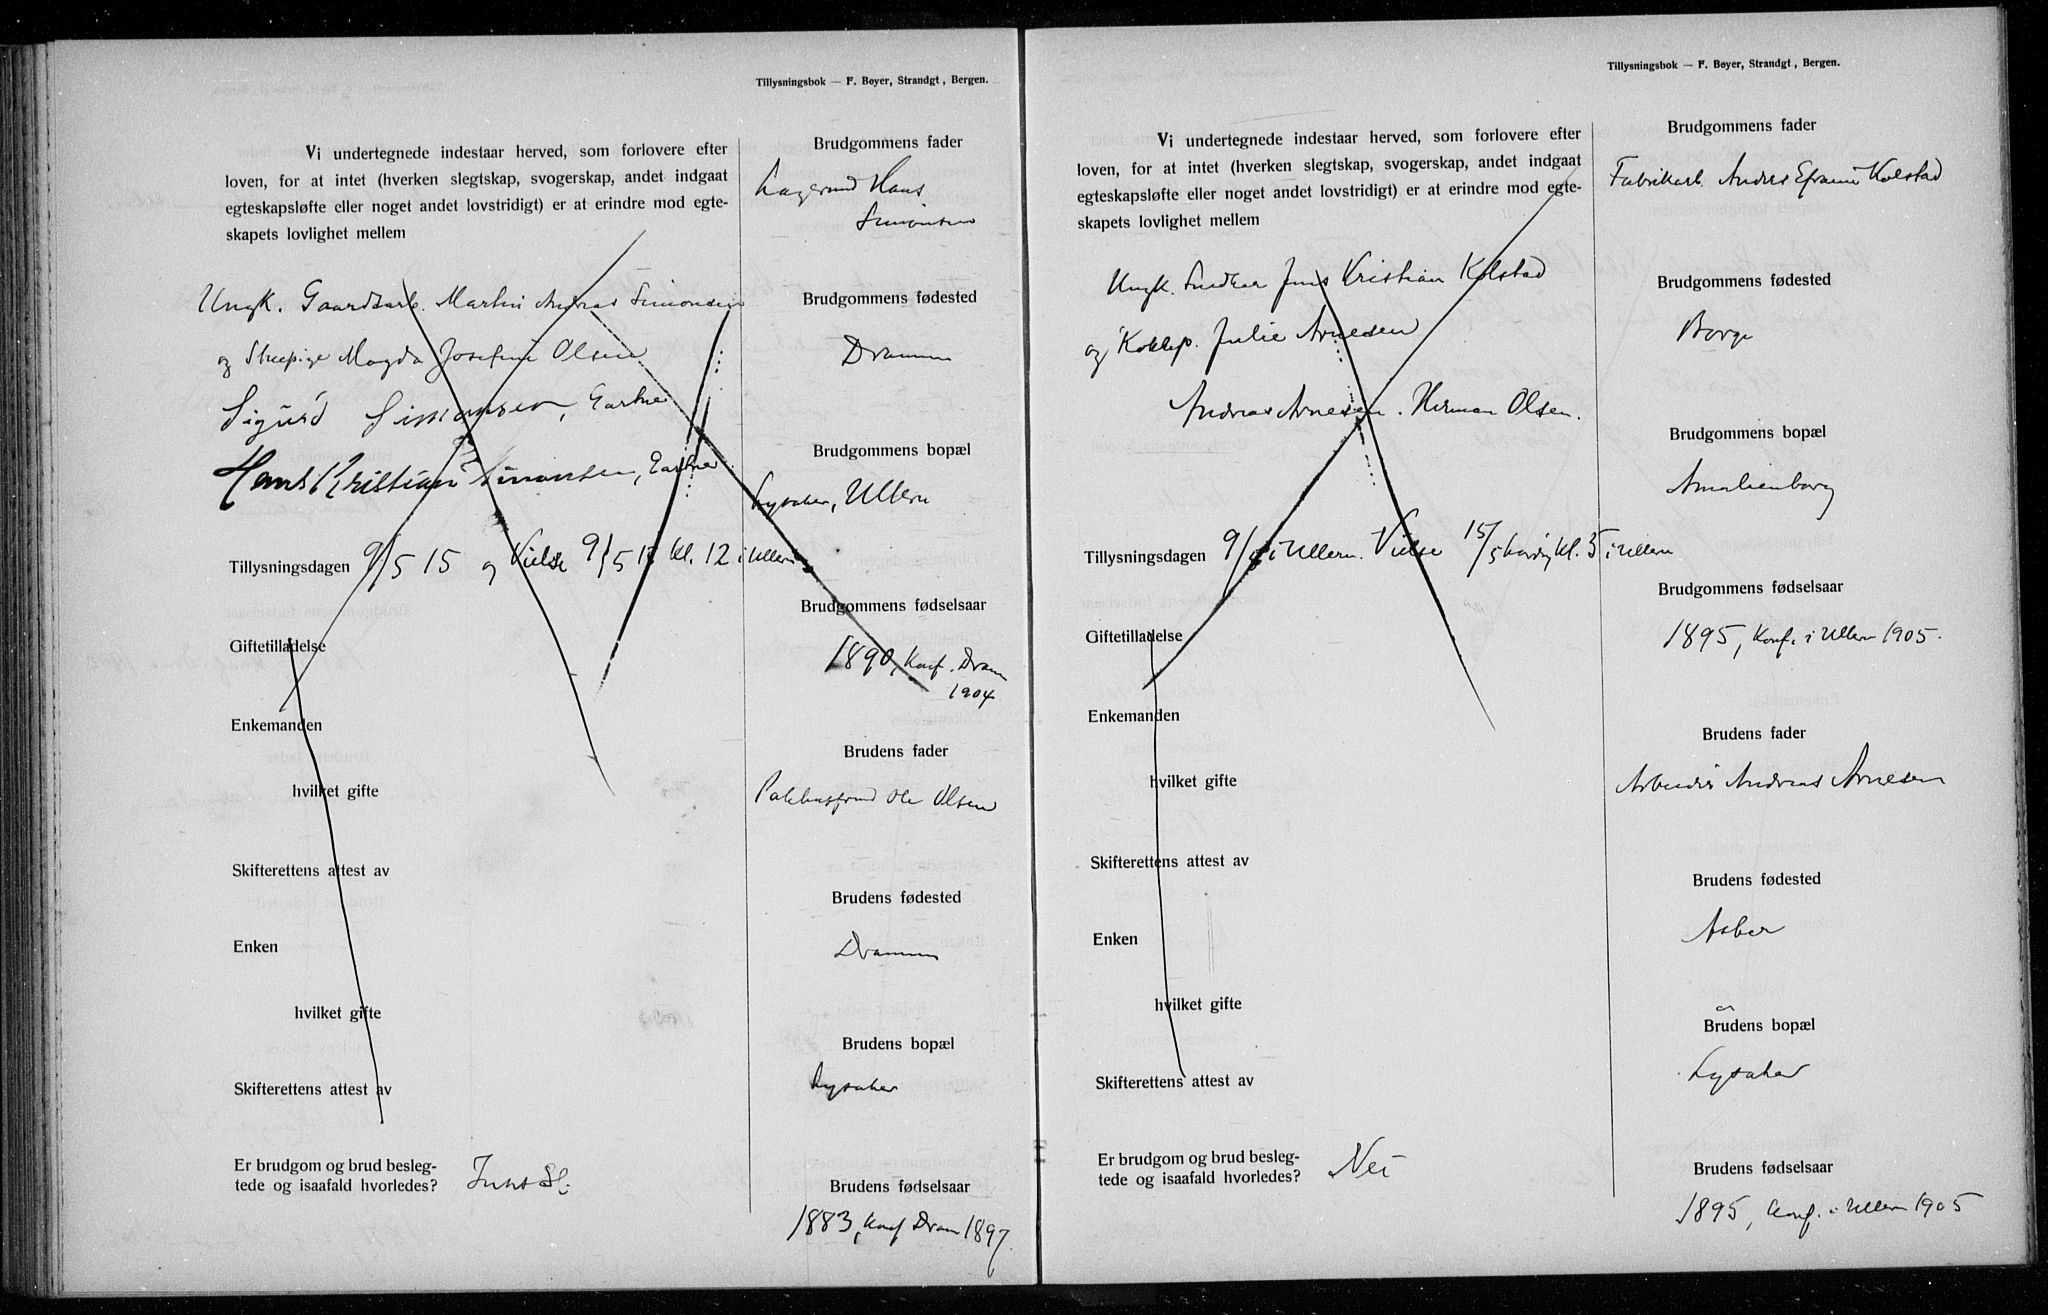 Tillysningsbok — F. Beyer, Strandgt, Bergen.
Vi undertegnede indestaar herved, som forlovere efter
loven, for at intet (hverken slegtskap, svogerskap, andet indgaat
egteskapsløfte eller noget andet lovstridigt) er at erindre mod egte-
skapets lovlighet mellem
Ungk. Gaardsarb. Martin Andreas Simonsen
og Magda Josefine Olsen
Sigurd Simonsen,
Hans Kristian Simonsen,
Tillysningsdagen 9/5 15 og Vielse 9/5 15 kl. 12 i Ullern
Giftetilladelse
Enkemanden
hvilket gifte
Skifterettens attest av
Enken
hvilket gifte
Skifterettens attest av
Er brudgom og brud besleg-
tede og isaafald hvorledes?
Brudgommens fader
Hans
Simonsen
Brudgommens fødested
Drammen
Brudgommens bopæl
Lysaker, Ullern
Brudgommens fødselsaar
1890, Konf. Dram
1904
Brudens fader
Ole Olsen
Brudens fødested
Drammen
Brudens bopæl
Lysaker
Brudens fødselsaar
1883, Konf Dram 1897.
Tillysningsbok — F. Beyer, Strandgt, Bergen.
Vi undertegnede indestaar herved, som forlovere efter
loven, for at intet (hverken slegtskap, svogerskap, andet indgaat
egteskapsløfte eller noget andet lovstridigt) er at erindre mod egte-
skapets lovlighet mellem
Ungk. Snedker Jens Kristian Kolstad
og Kokkep. Julie Arnesen
Andreas Arnesen. Herman Olsen.
Tillysningsdagen 9/5 i Ullern. Vielse 15/5 kl. 5 i Ullern
Giftetilladelse
Enkemanden
hvilket gifte
Skifterettens attest av
Enken
hvilket gifte
Skifterettens attest av
Er brudgom og brud besleg-
tede og isaafald hvorledes? Nei
Brudgommens fader
Fabrikarb. Andres Efraim Kolstad
Brudgommens fødested
Borge
Brudgommens bopæl
Amalienborg
Brudgommens fødselsaar
1895, Konf. i Ullern 1905.
Brudens fader
Arbeider Andreas Arnesen
Brudens fødested
Asker
Brudens bopæl
Lysaker
Brudens fødselsaar
1895, Konf. i Ullern 1905